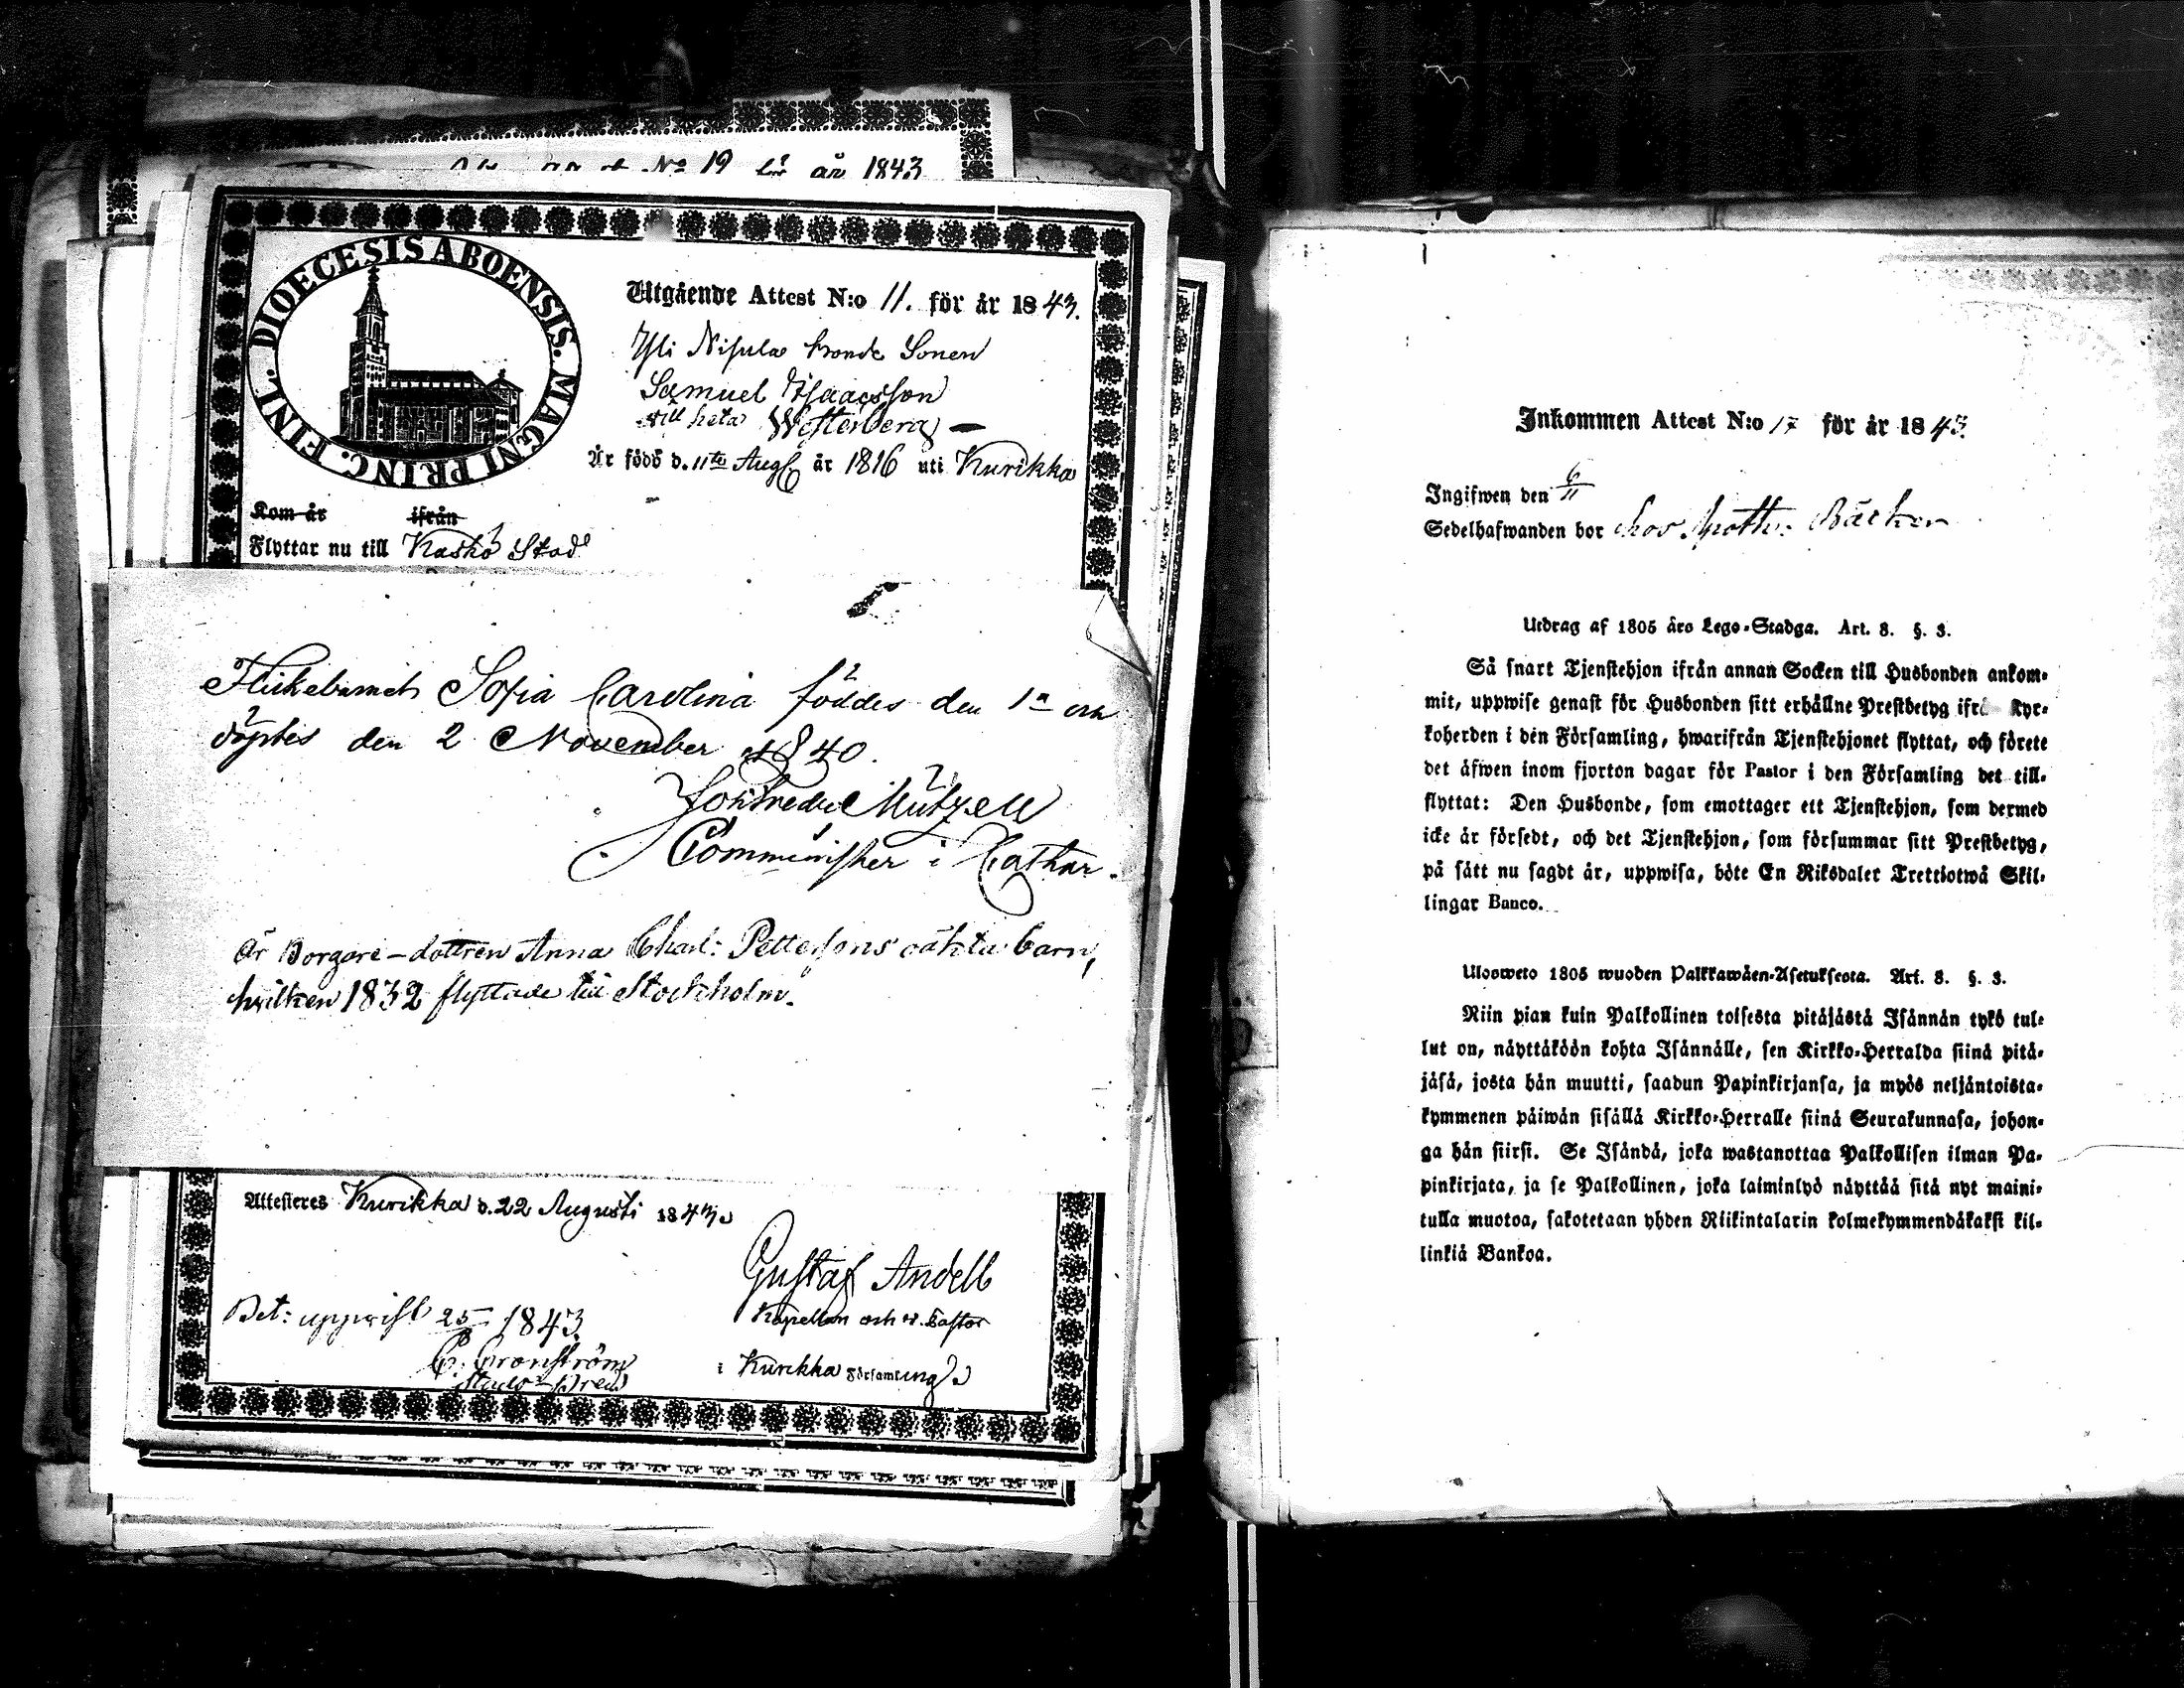 Nº 19 för år 1843
DIOECESIS ABOENSIS. MAGNI PRINC. FINL.
Utgående Attest N:o 11. för år 1843.
Yli Nisula bonde Sonen
Samuel Isaacsson
vill heta Westerberg —
Är född d. 11te Aug år 1816 uti Kurikka
Kom år ifrån
Flyttar nu till Kaskö Stad
Flickebarnet Sofia Carolina föddes den 1a och
döptes den 2 November 1840.
Mützell
Comminister i Cathar.
Är Borgare-dottren Anna Charl: Pettersons oäkta barn,
hvilken 1832 flyttade till Stockholm.
Attesteres Kurikka d. 22 Augusti 1843
Gustaf Andell
Kapellan och v. Pastor
i Kurikka Församling
Bet: uppvist 25 1843
C. Gronström
Inkommen Attest N:o 17 för år 1843.
Ingifwen den 6/11
Sedelhafwanden bor hos Bäcker
Utdrag af 1805 års Lego-Stadga. Art. 8. §. 3.
Så snart Tjenstehjon ifrån annan Socken till Husbonden ankom-
mit, uppwise genast för Husbonden sitt erhållne Prestbetyg ifrå Kyr-
koherden i den Församling, hwarifrån Tjenstehjonet flyttat, och förete
det äfwen inom fjorton dagar för Pastor i den Församling det till-
flyttat: Den Husbonde, som emottager ett Tjenstehjon, som dermed
icke är försedt, och det Tjenstehjon, som försummar sitt Prestbetyg,
på sätt nu sagdt är, uppwisa, böte En Riksdaler Trettiotwå Skil-
lingar Banco.
Ulosweto 1805 wuoden Palkkawäen-Asetuksesta. Art. 8. §. 3.
Niin pian kuin Palkollinen toisesta pitäjästä Isännän tykö tul-
lut on, näyttäköön kohta Isännälle, sen Kirkko-Herralda siinä pitä-
jäsä, josta hän muutti, saadun Papinkirjansa, ja myös neljäntoista-
kymmenen päiwän sisällä Kirkko-Herralle siinä Seurakunnasa, johon-
ga hän siirsi. Se Isändä, joka wastanottaa Palkollisen ilman Pa-
pinkirjata, ja se Palkollinen, joka laiminlyö näyttää sitä nyt maini-
tulla muotoa, sakotetaan yhden Riikintalarin kolmekymmendäkaksi kil-
linkiä Bankoa.